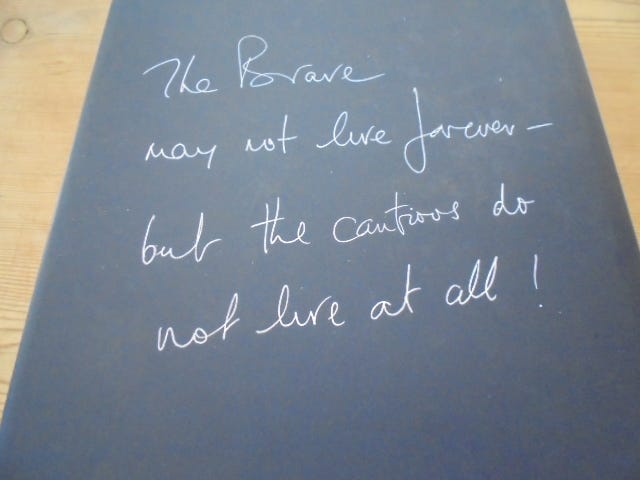 The Brave
may not live forever –
but the cautious do
not live at all !